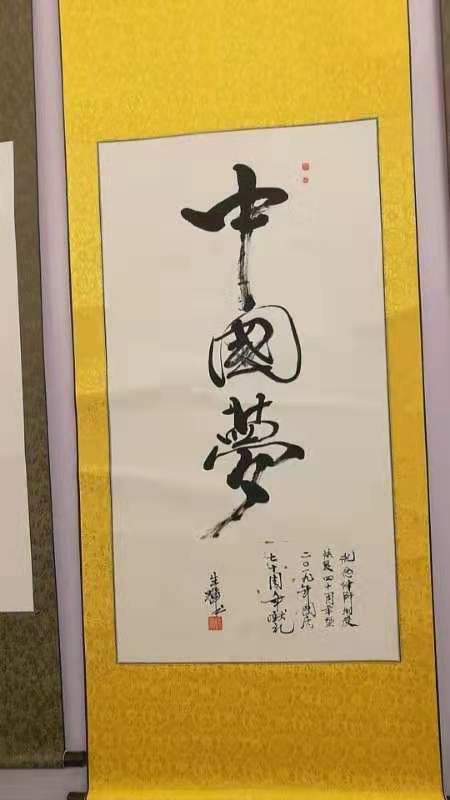 中國夢
祝賀律師制度
恢复四十周年暨
二〇一九年國慶
七十周年献礼
生辉书